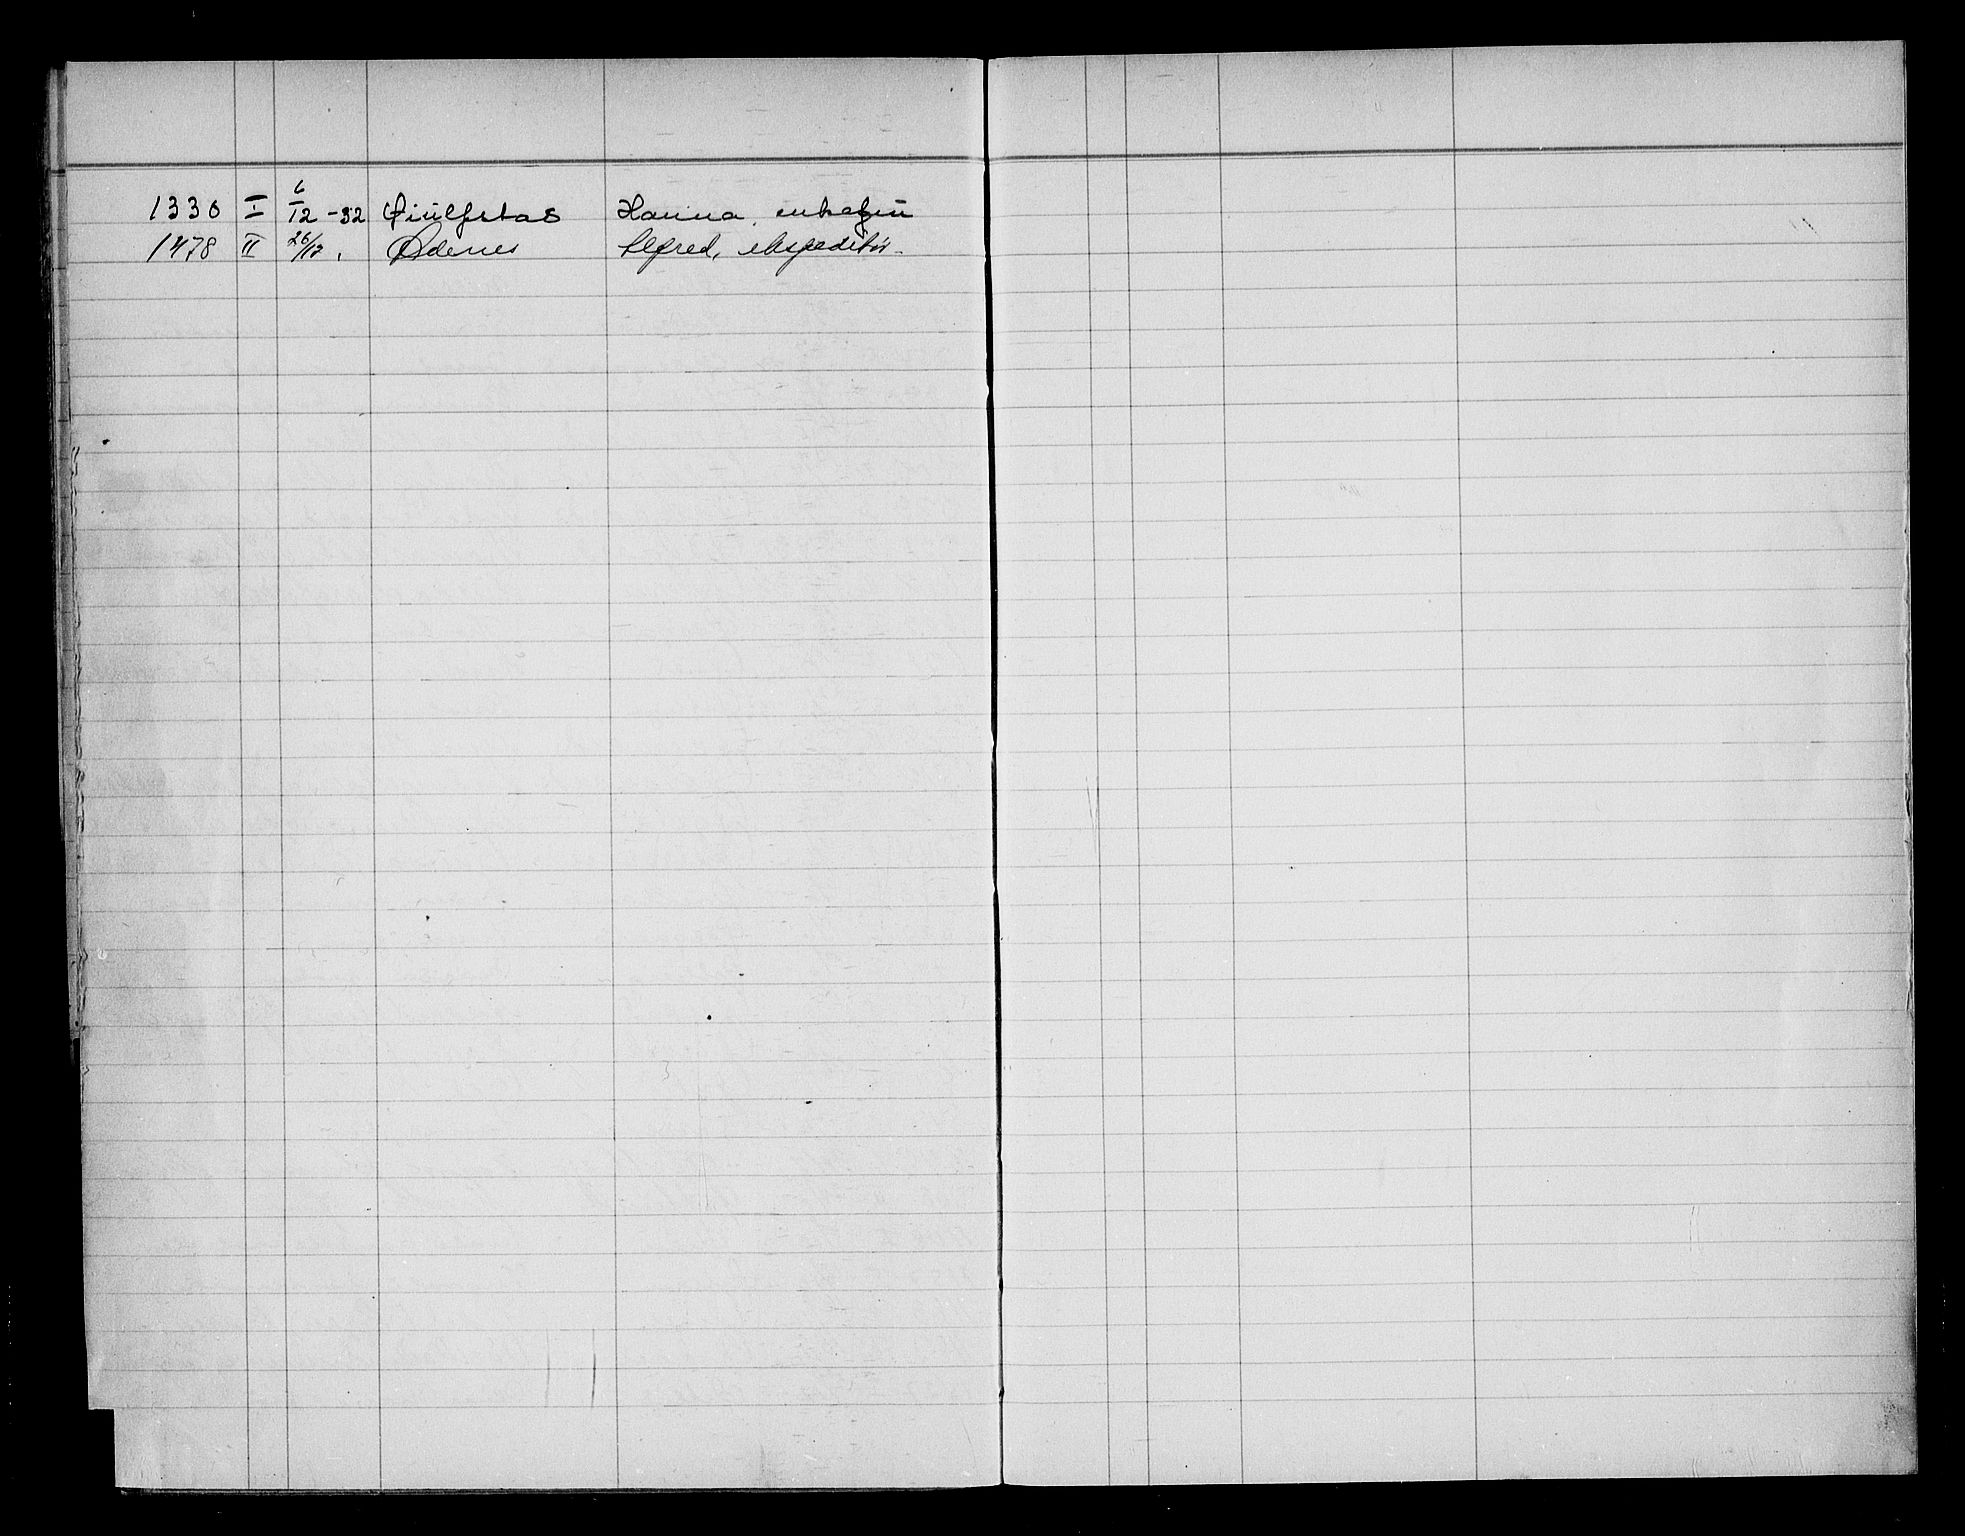 1336 I 6/12 -32 Øiulfstad Hanna enkefru
1478 II 26/12 , Ødenes Alfred, ekspeditør